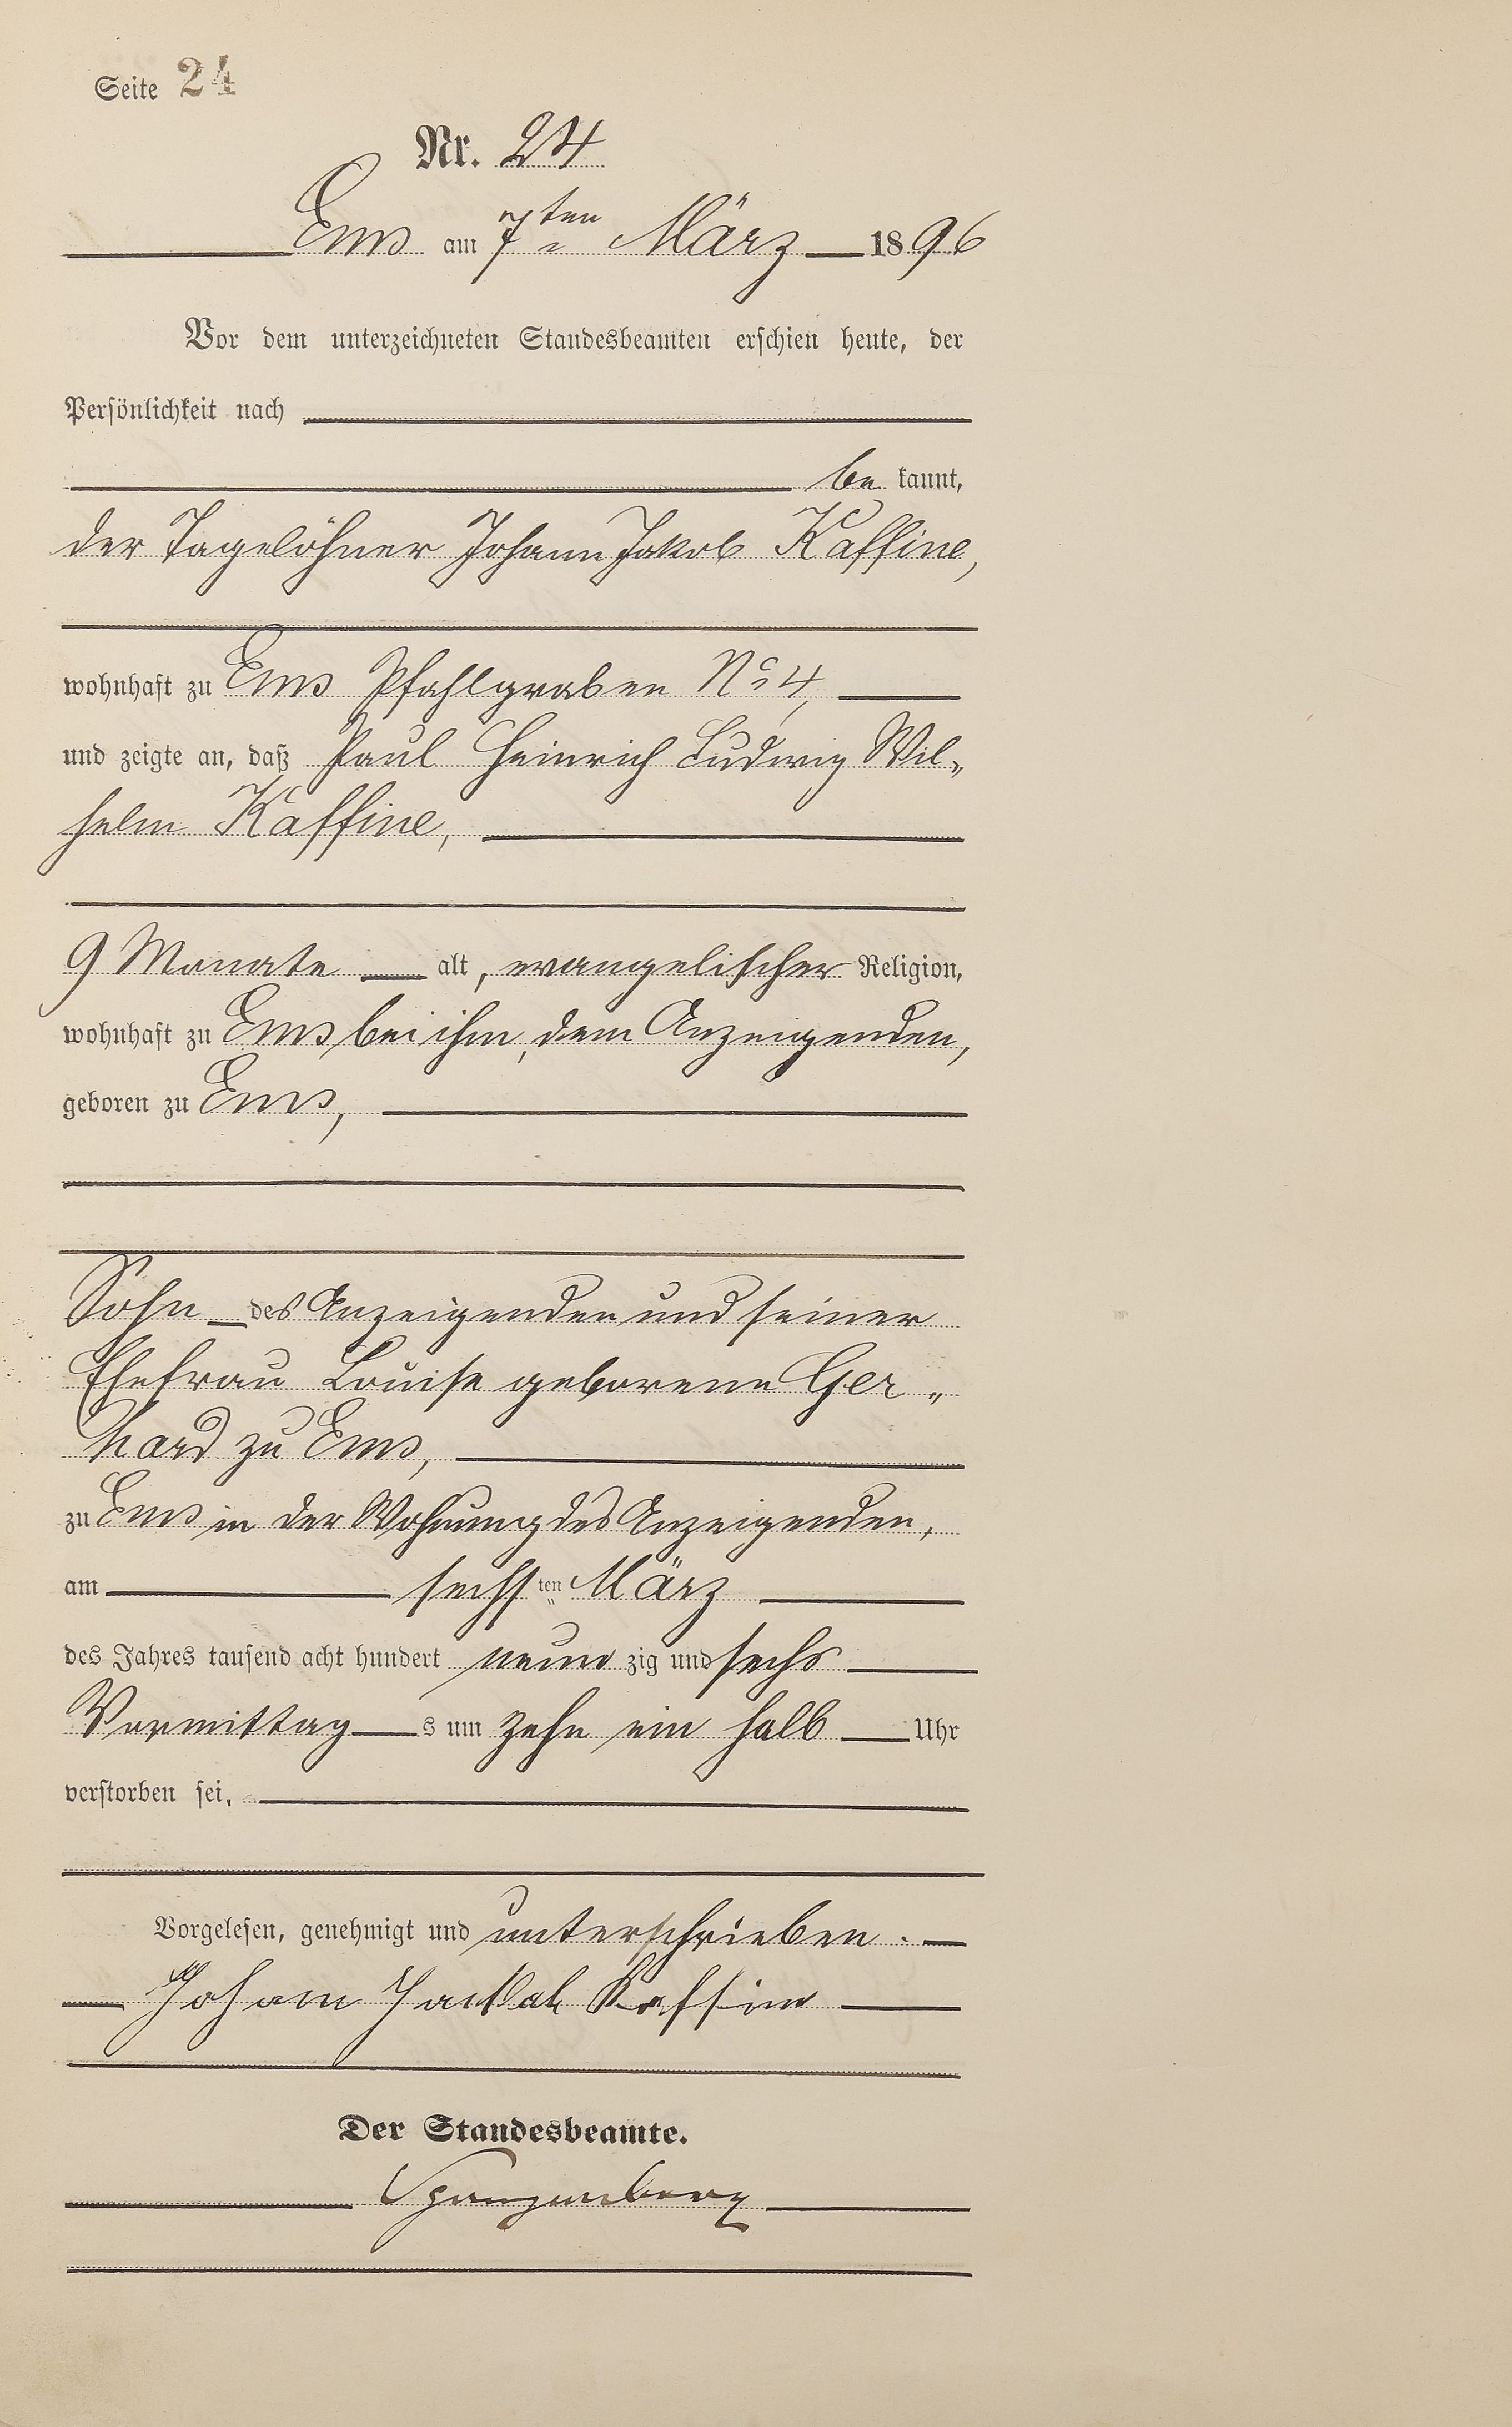 Seite 24
Nr. 24
Ems am 7ten März 1896
Vor dem unterzeichneten Standesbeamten erschien heute, der
Persönlichkeit nach
be kannt,
der Tagelöhner Johann Jakob Kaffine,
wohnhaft zu Ems Pfahlgraben No 4,
und zeigte an, daß Paul Heinrich Ludwig Wil„
helm Kaffine,
9 Monate alt, evangelischer Religion,
wohnhaft zu Ems bei ihm, dem Anzeigenden,
geboren zu Ems,
Sohn des Anzeigenden und seiner
Ehefrau Louise geborene Ger„
hard zu Ems,
zu Ems in der Wohnung des Anzeigenden,
am sechsten März
des Jahres tausend acht hundert neun zig und sechs
Vormittag s um zehn ein halb Uhr
verstorben sei.
Vorgelesen, genehmigt und unterschrieben.
Johann Kaffine
Der Standesbeamte.
Spangenberg